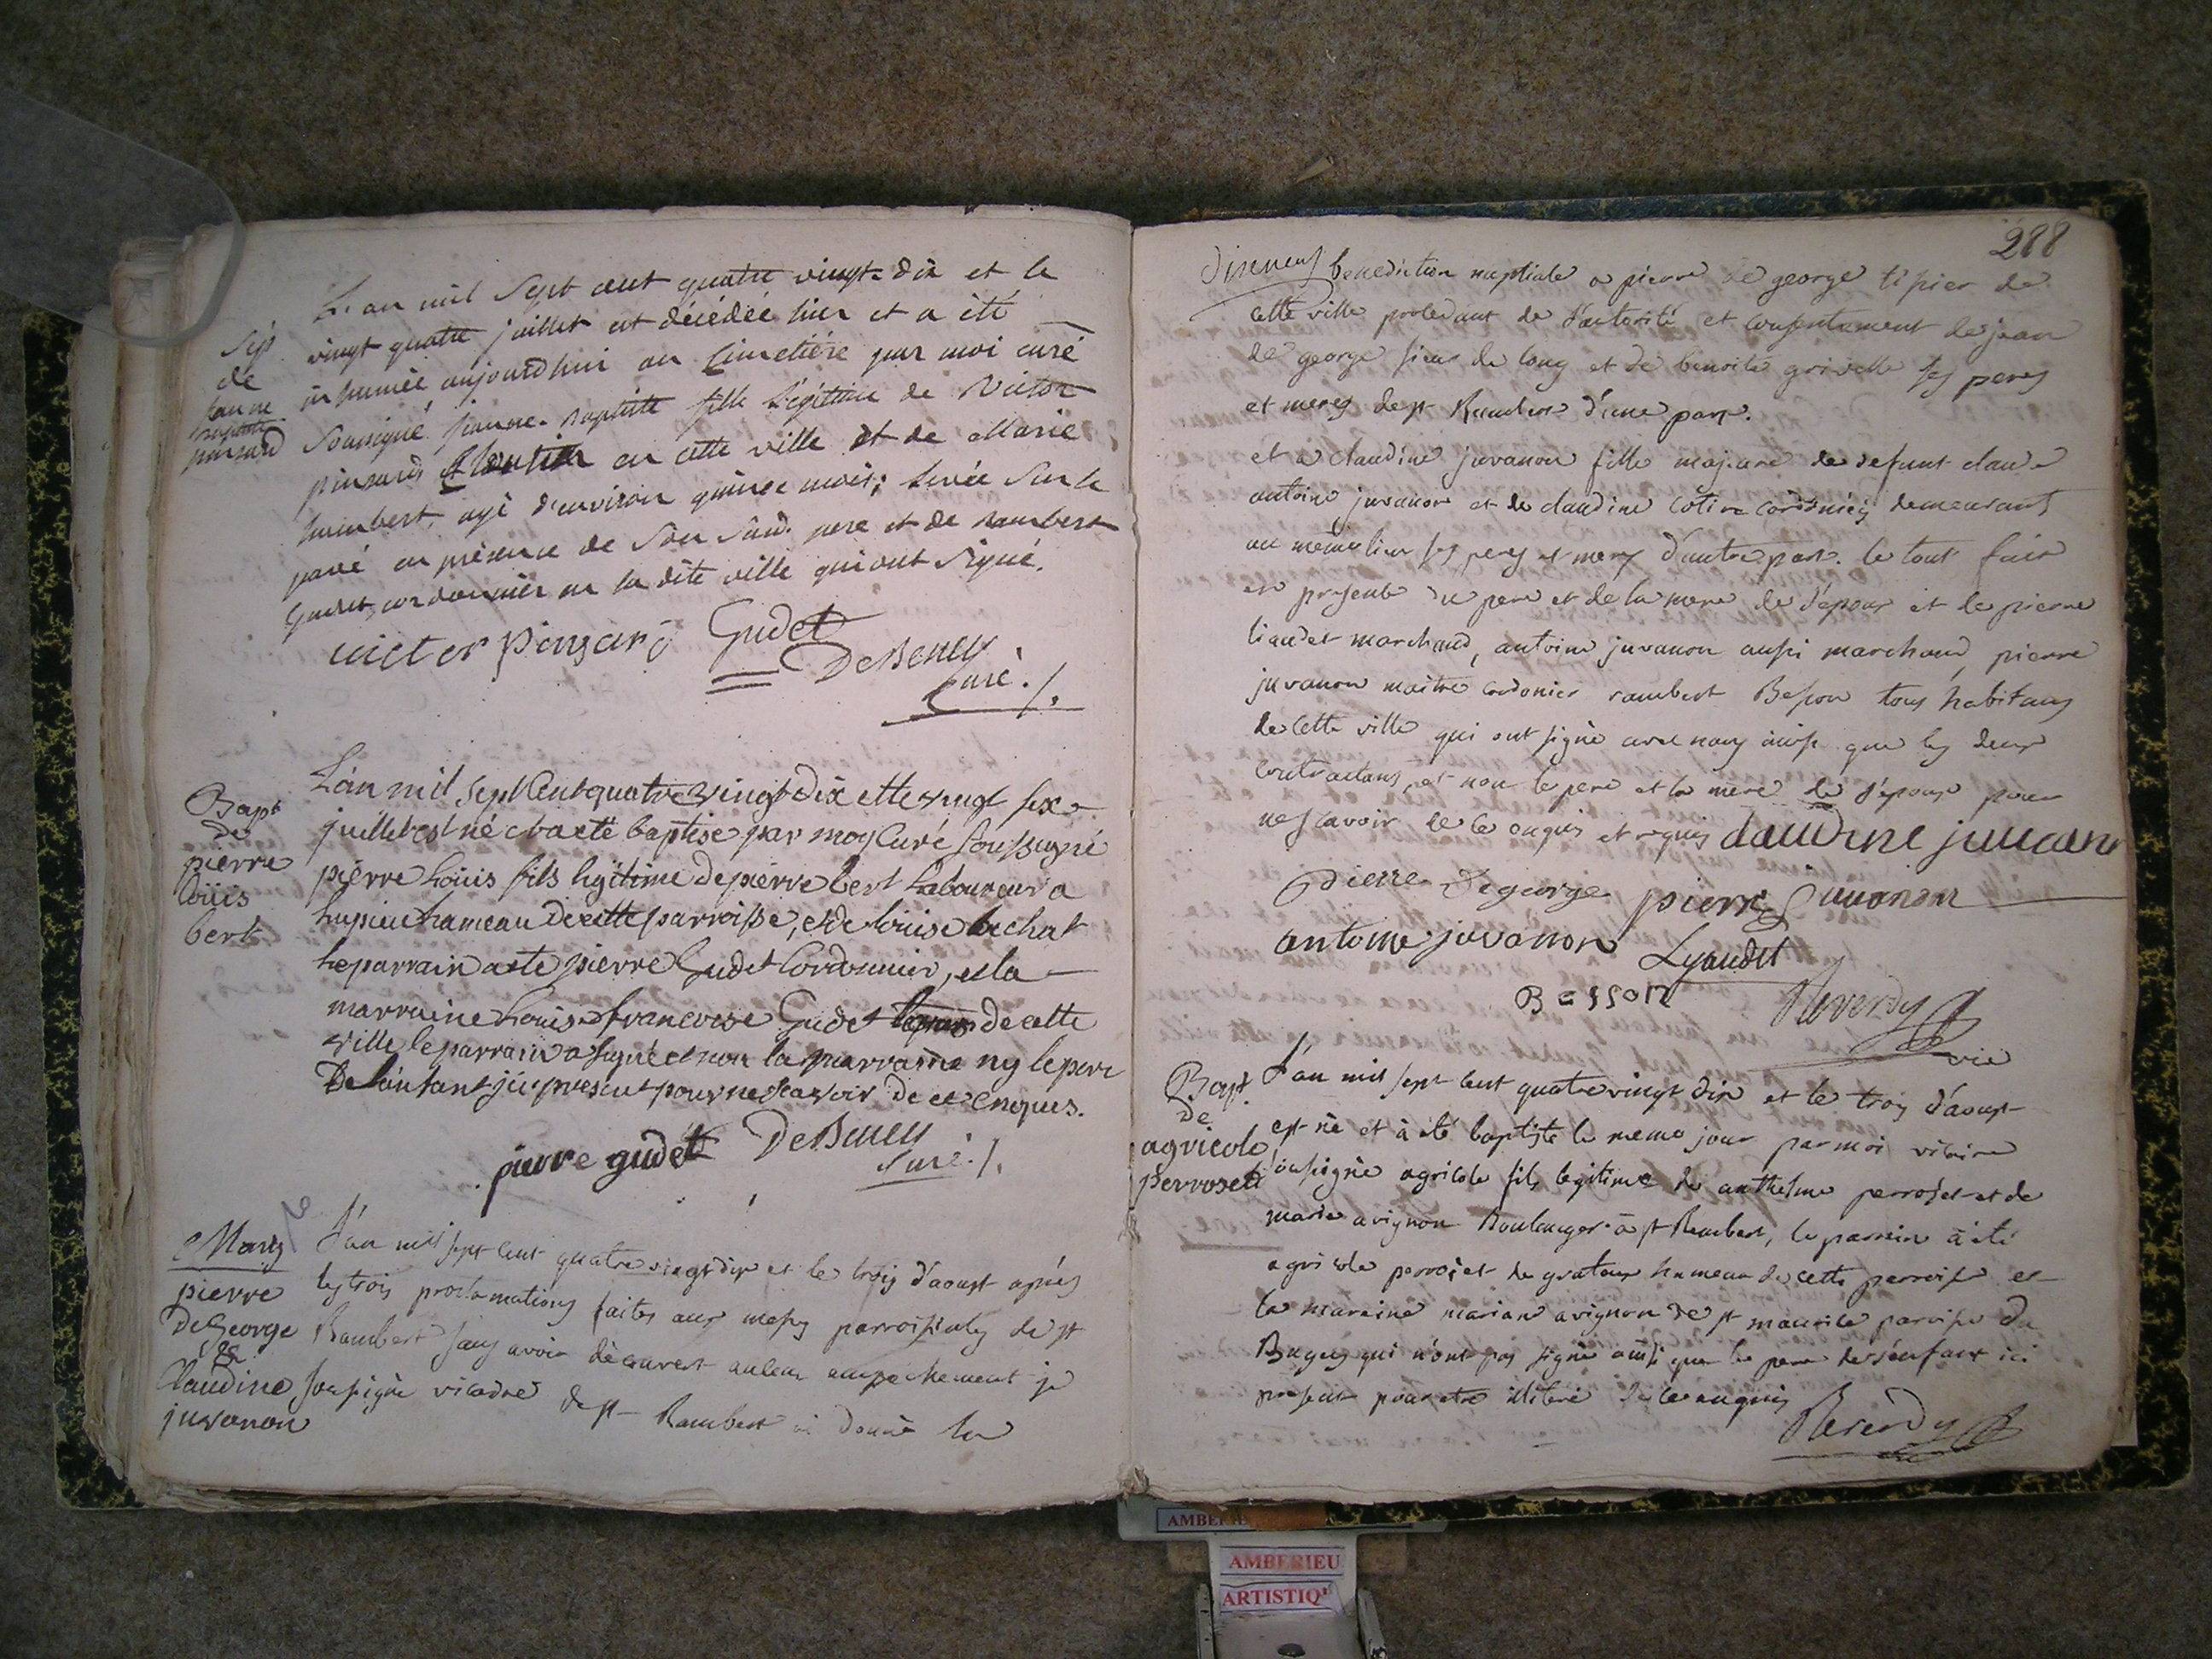 L'an mil Sept cent quatre vingt-dix et le
vingt quatre juillet est décédée hier et a été
inhumée aujourdhui au Cimetière par moi curé
Soussigné jeanne-Baptiste fille légitime de Victor
pinsard en cette ville et de Marie
humbert, agé d'environ quinze mois; levée Sur le
pavé en présence de Son Susd. pere et de Rambert
Gudet, cordonnier en la dite ville qui ont Signé.
Sép
de
jeanne
baptiste
pinsard
victor pinsard Gudet
DeBeney
Curé ./.
Bapt
de
pierre
loüis
bert
L'an mil Sept Cent quatre vingt Dix et le vingt six
juillet est né et a eté baptisé par moy Curé soussigné
pierre Loüis fils légitime de pierre bert Laboureur a
Lupieu hameau De cette parroisse, et de loüise bechat
Le parrain a ete pierre Gudet Cordonnier, et la
marraine Louise francoise Gudet de cette
ville le parrain a signé et non la marraine ny le pere
De l'enfant ici present pour ne scavoir de ce enquis.
pierre gudet DeBeney
Curé ./.
Mary
pierre
DeGeorge
&
Claudine
juvanon
L'an mil sept cent quatre vingt dix et le trois d'aoust après
les trois proclamations faites aux messes parroissiales de st
Rambert sans avoir découvert aucun empechement je
sousigné vicaire de st Rambert ai donné la
288
benediction nuptiale a pierre de george tipier de
cette ville procedant de l'autorité et consentement de jean
de george sieur de long et de benoite grivelle ses peres
et meres de st Rambert d'une part.
et a claudine juvanon fille majeure de defunt claude
antoine juvanon et de claudine cotin cordoniers demeurants
au même lieu ses peres et meres d'autre part. le tout fait
en presence du pere et de la mere de l'epoux et de pierre
liaudet marchand, antoine juvanon aussi marchand, pierre
juvanon maitre cordonier rambert Besson tous habitans
de cette ville qui ont signé avec nous ainsi que les deux
contractans, et non le pere et la mere de l'epoux pour
ne scavoir de ce enquis et requis claudine juvanon
pierre degeorge pierre juvanon
antoine juvanon Lyaudet
Besson Reverdy
vic
Bapt.
De
agricole
perroset
L'an mil sept cent quatre vingt dix et le trois d'aoust
est né et à été baptisé le meme jour par moi vicaire
sousigné agricole fils legitime de anthelme perroset et de
marie avignon Boulanger à st Rambert, le parrain à été
agricole perroset de gratoux hameau de cette parroisse et
la maraine mariane avignon de st maurice paroisse du
Bugey qui n'ont pas signé ainsi que le pere de l'enfant ici
present pour etre illiteré de ce enquis
Reverdy
AMBERIEU
ARTISTIQ'